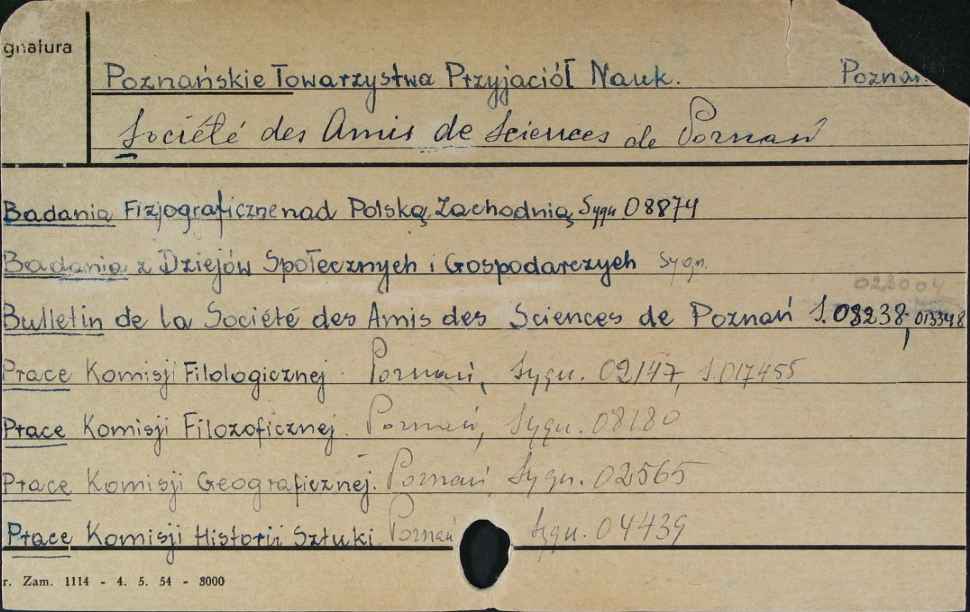 gnatura
Poznańskie Towarzystwa Przyjaciół Nauk. Poznań
Société des Amis de Sciences de Poznań
Badania Fizjograficzne nad Polską Zachodnią Sygn 08874
Badania z Dziejów Społecznych i Gospodarczych Sygn.
Bulletin de la Société des Amis des Sciences de Poznań S. 08238, 013348
Prace Komisji Filologicznej. Poznań, Sygn. 02147, S. 017455
Prace Komisji Filozoficznej. Poznań, Sygn. 08180
Prace Komisji Geograficznej. Poznań Sygn. 02565
Prace Komisji Historii Sztuki. Poznań Sygn. 04439
r. Zam. 1114 - 4. 5. 54 - 8000